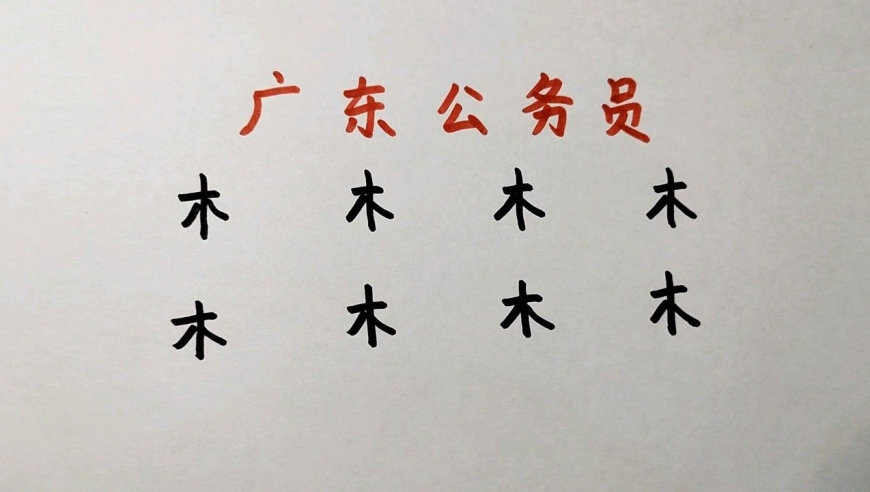 广东公务员
木 木 木 木
木 木 木 木